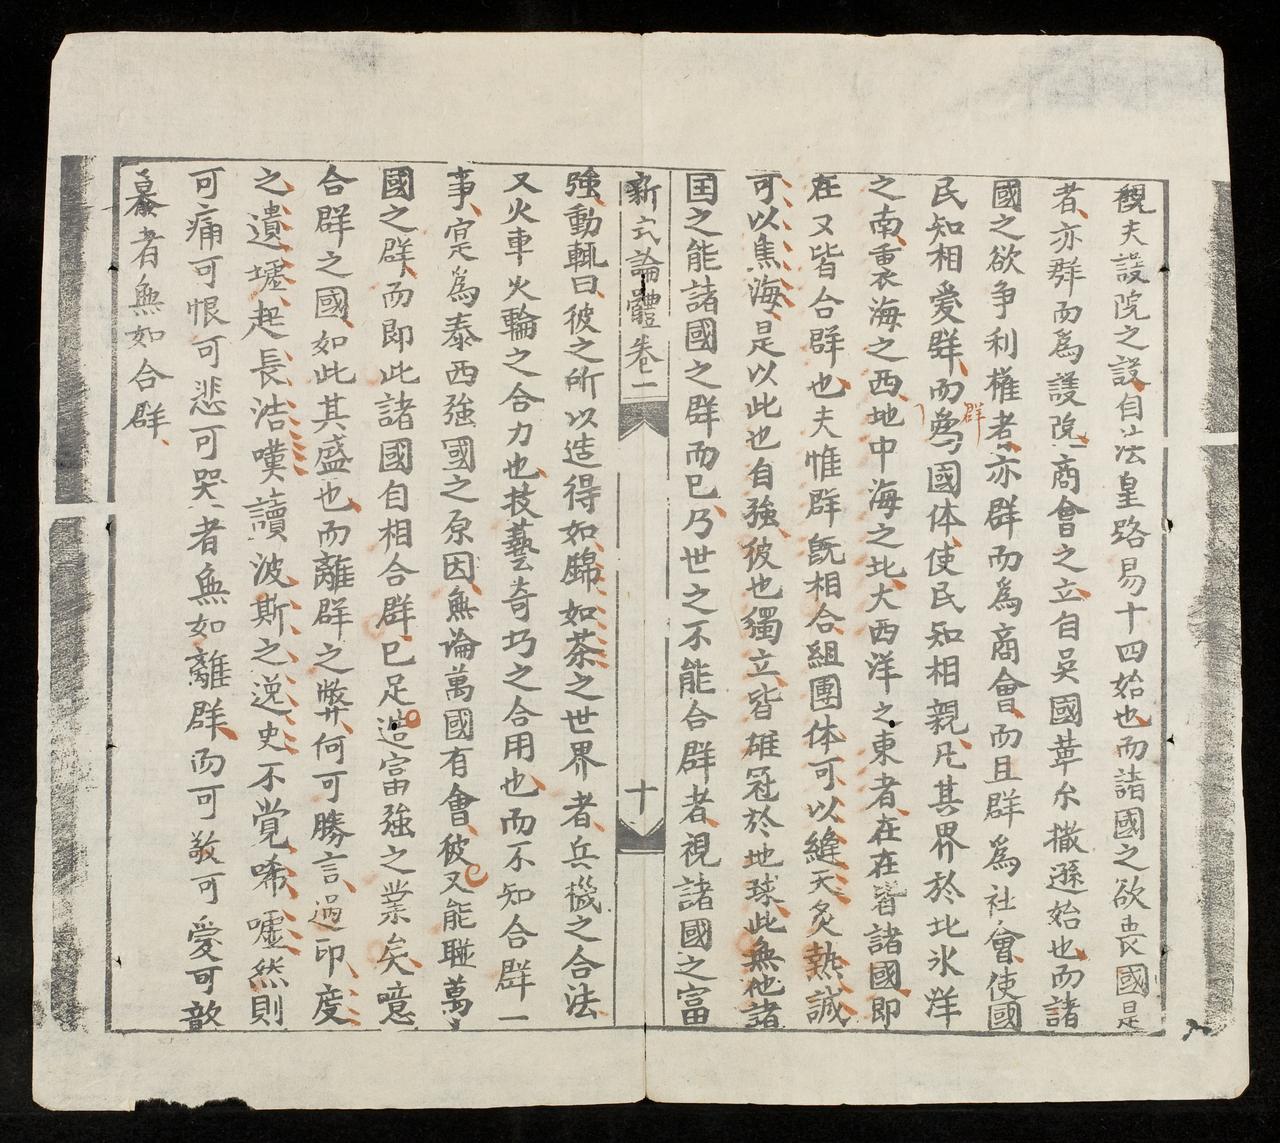 觀夫設院之設自法皇路易十四始也而諸國之欲喪國是
者亦群而爲護院商會之立自吳國華尔撒遜始也而諸
國之欲争利權者亦群而爲商會而且群爲社會使國
民知相愛群而爲國体使民知相親凡其界於北氷洋
群
之南重衣海之西地中海之北大西洋之東者在在皆諸國即
在又皆合群也夫惟群既相合組團体可以縫天炙熱誠
可以焦海是以此也自強彼也獨立皆雄冠於地球此無他諸
国之能諸國之群而已乃世之不能合群者視諸國之富
新式論體卷二
十
強動輒曰彼之所以造得如錦如荼之世界者兵機之合法
又火車火輪之合力也技藝奇巧之合用也而不知合群一
事寔爲泰西強國之原因無論萬國有會彼又能聯萬
國之群而即此諸國自相合群已足造富強之業矣噫
合群之國如此其盛也而離群之弊何可勝言過印度
之遺墟起長浩嘆讀波斯之逸史不覚唏嘘然則
可痛可恨可悲可哭者無如離群而可敬可愛可歆
可慕者無如合群